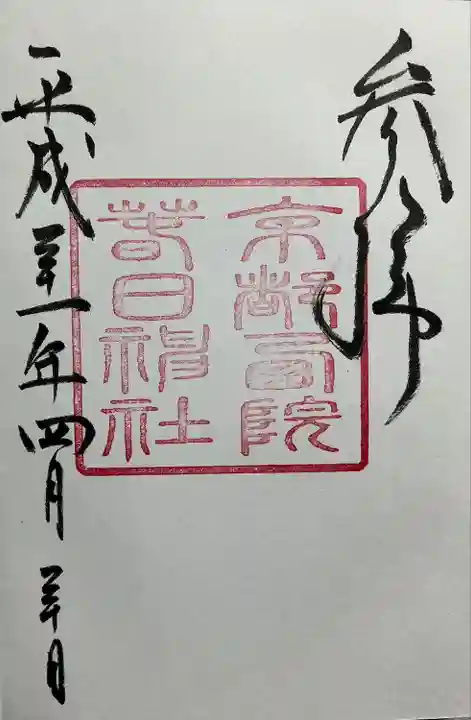 参拝
京都西院
春日神社
平成三十一年四月三十日